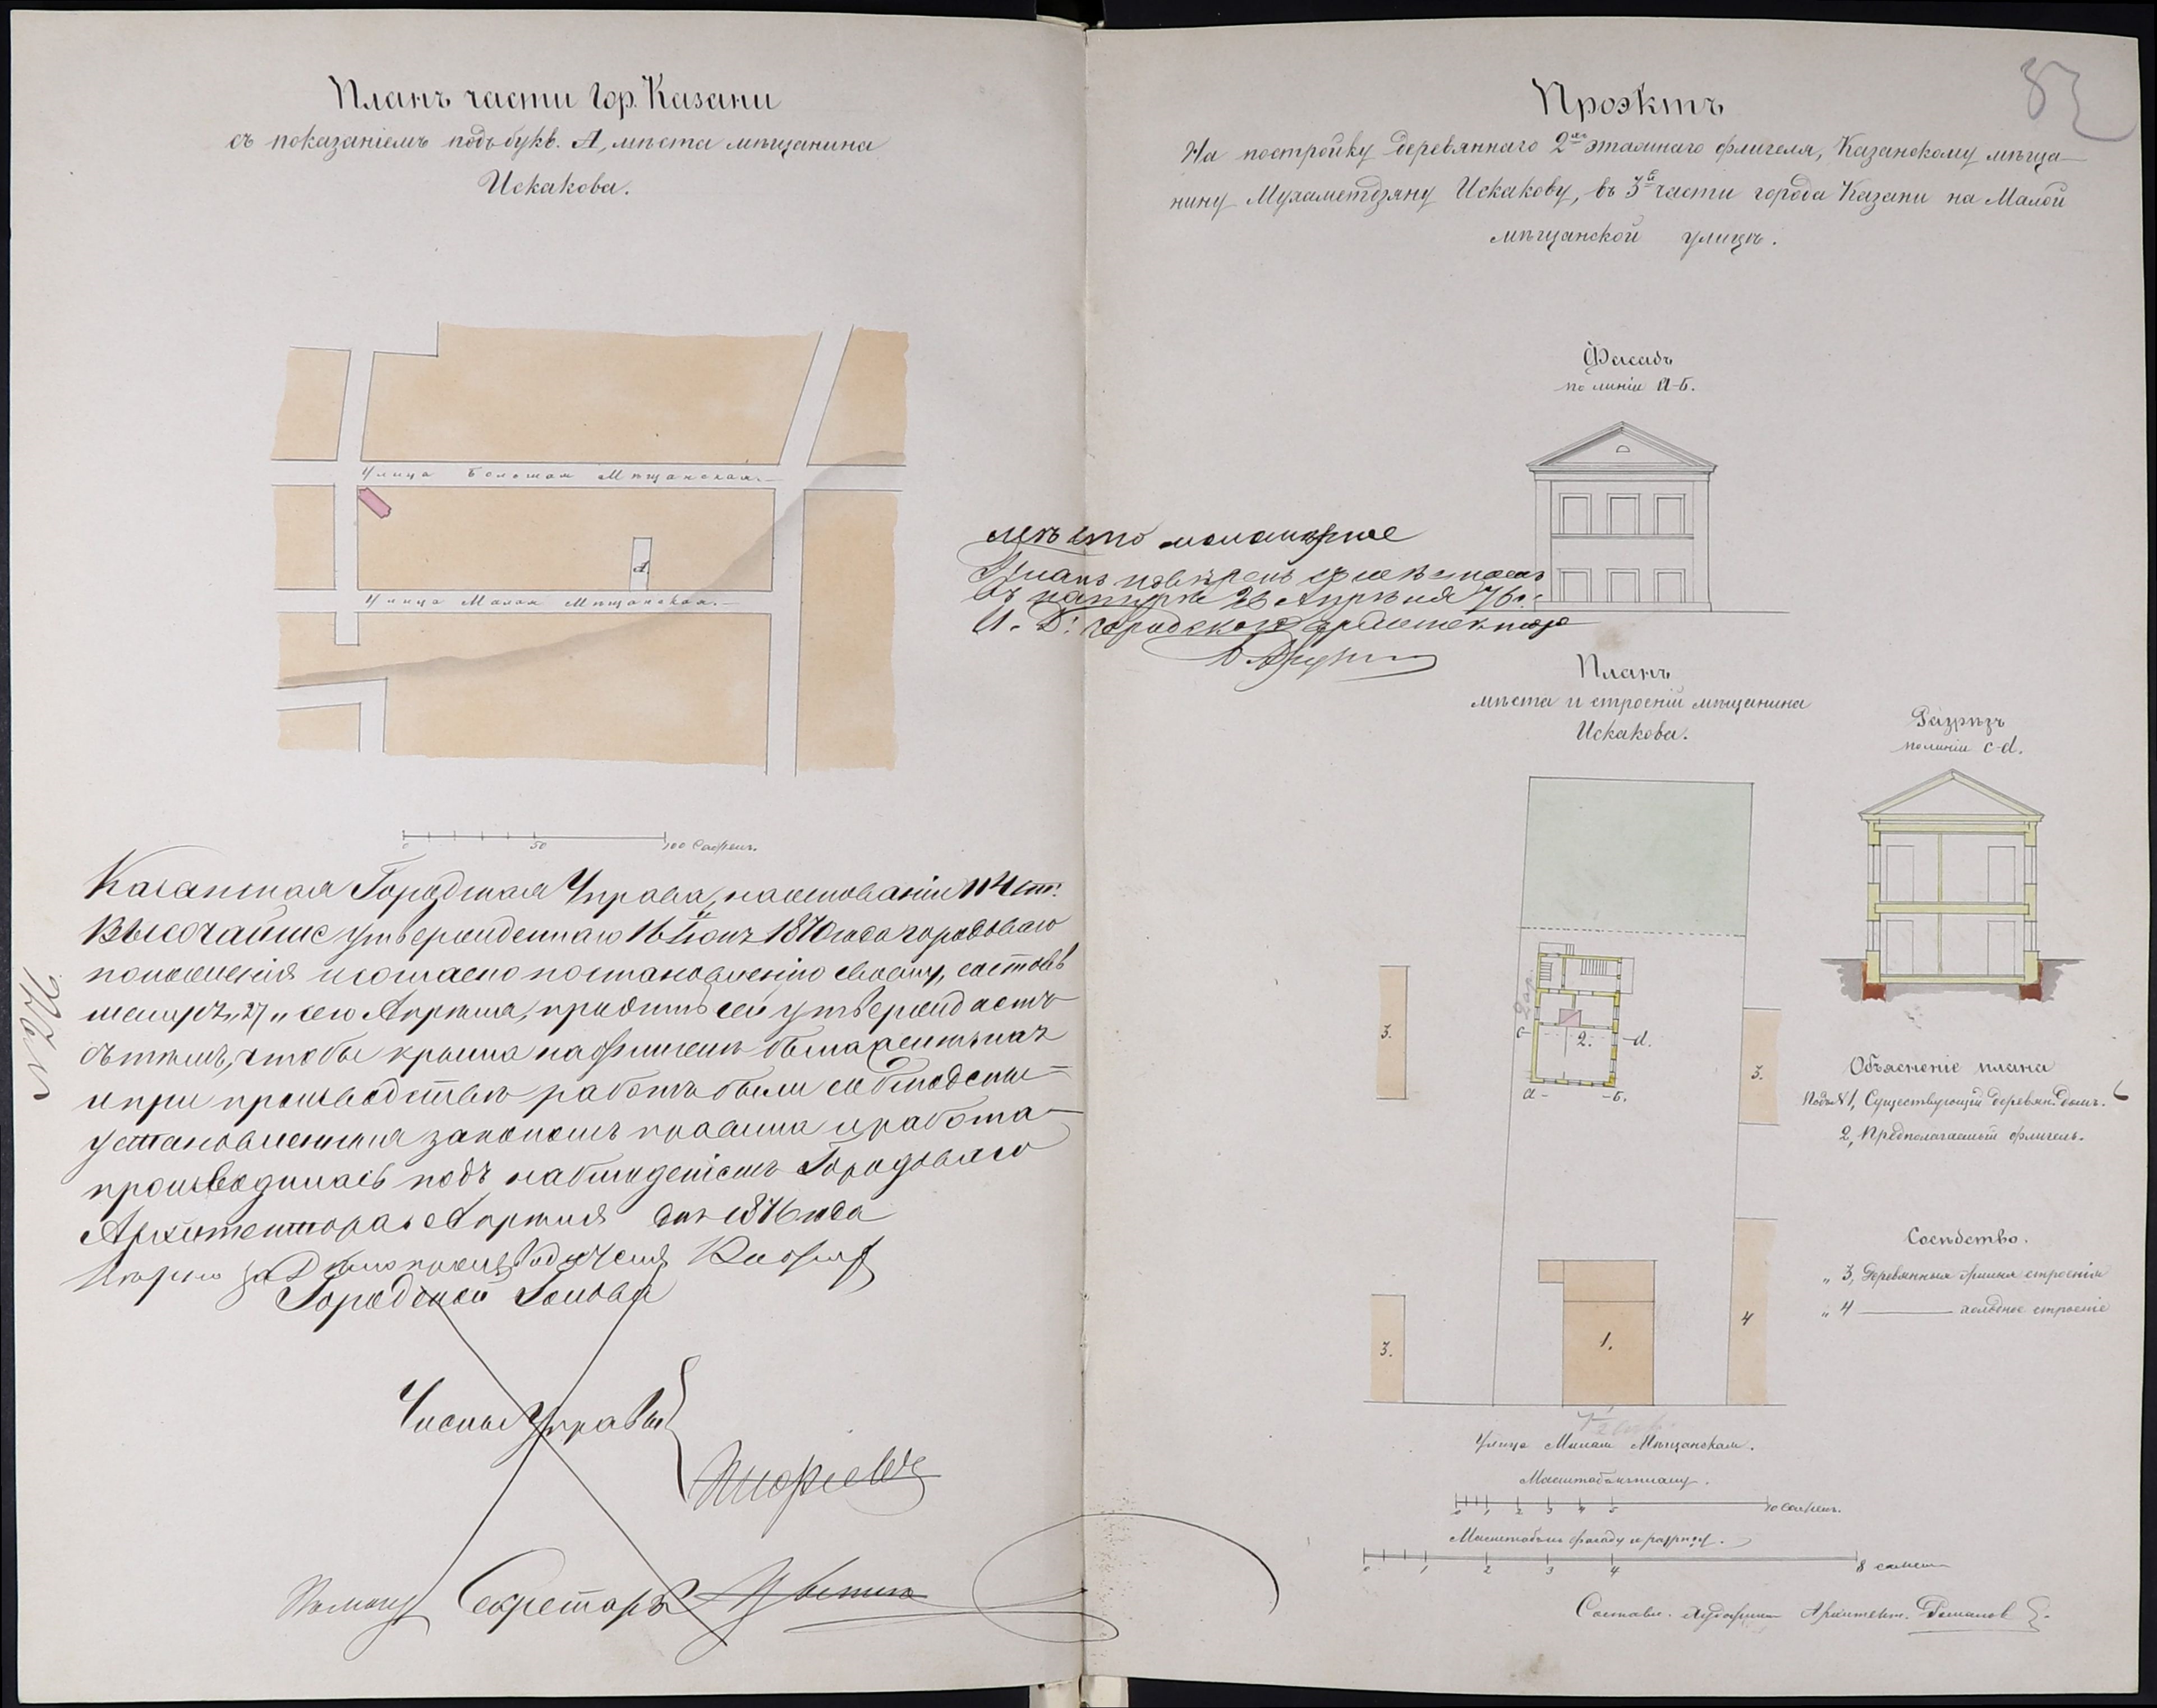 Планъ части Гор. Казани
съ показаніемъ подъ букв. А, мѣста мѣщанина
Искакова.
Улица Большая Мѣщанская.
А.
Улица Малая Мѣщанская.
0 50 100 Сажень.
Казанская Городская Управа, на основаніи 114 ст.
Высочайше утвержденнаго 16 Іюня 1870 года городоваго
положенія и согласно постановленію своему, состояв
шемуся „27„ сего Апрѣля, проэктъ сей утверждаетъ
съ тѣмъ, чтобы крыша на флигелѣ была
и при производствѣ работъ были соблюдены
установленныя закономъ правила и работа
производилась подъ наблюденіемъ Городоваго
Архитектора. Апрѣля дня 1876 года
Городской Голова
Члены Управы
Секретарь
82
Проэктъ
На постройку деревяннаго 2хъ этажнаго флигеля, Казанскому мѣща-
нину Мухаметдзяну Искакову, въ 3й части города Казани на Малой
мѣщанской улицѣ.
Фасадъ
по линіи а-б.
мѣсто
Планъ повѣренъ съ мѣстомъ
въ натурѣ 26 Апрѣля 76 г.
И. Д. городскаго архитектора
Планъ
мѣста и строеній мѣщанина
Искакова.
Разрѣзъ
по линіи c-d.
3.
c- 2. -d.
а- -б.
3.
Объясненіе плана
Подъ №1, Существующій деревян. домъ.
2, Предполагаемый флигель.
Сосѣдство.
„ 3, Деревянныя жилыя строенія
„ 4 холодное строеніе
3.
1.
4
Улица Малая Мѣщанская.
Масштабъ къ плану.
0 1 2 3 4 5 10 сажень.
Масштабъ къ фасаду и разрѣзу.
0 1 2 3 4 8 сажен
Составл. Архитект. Романов